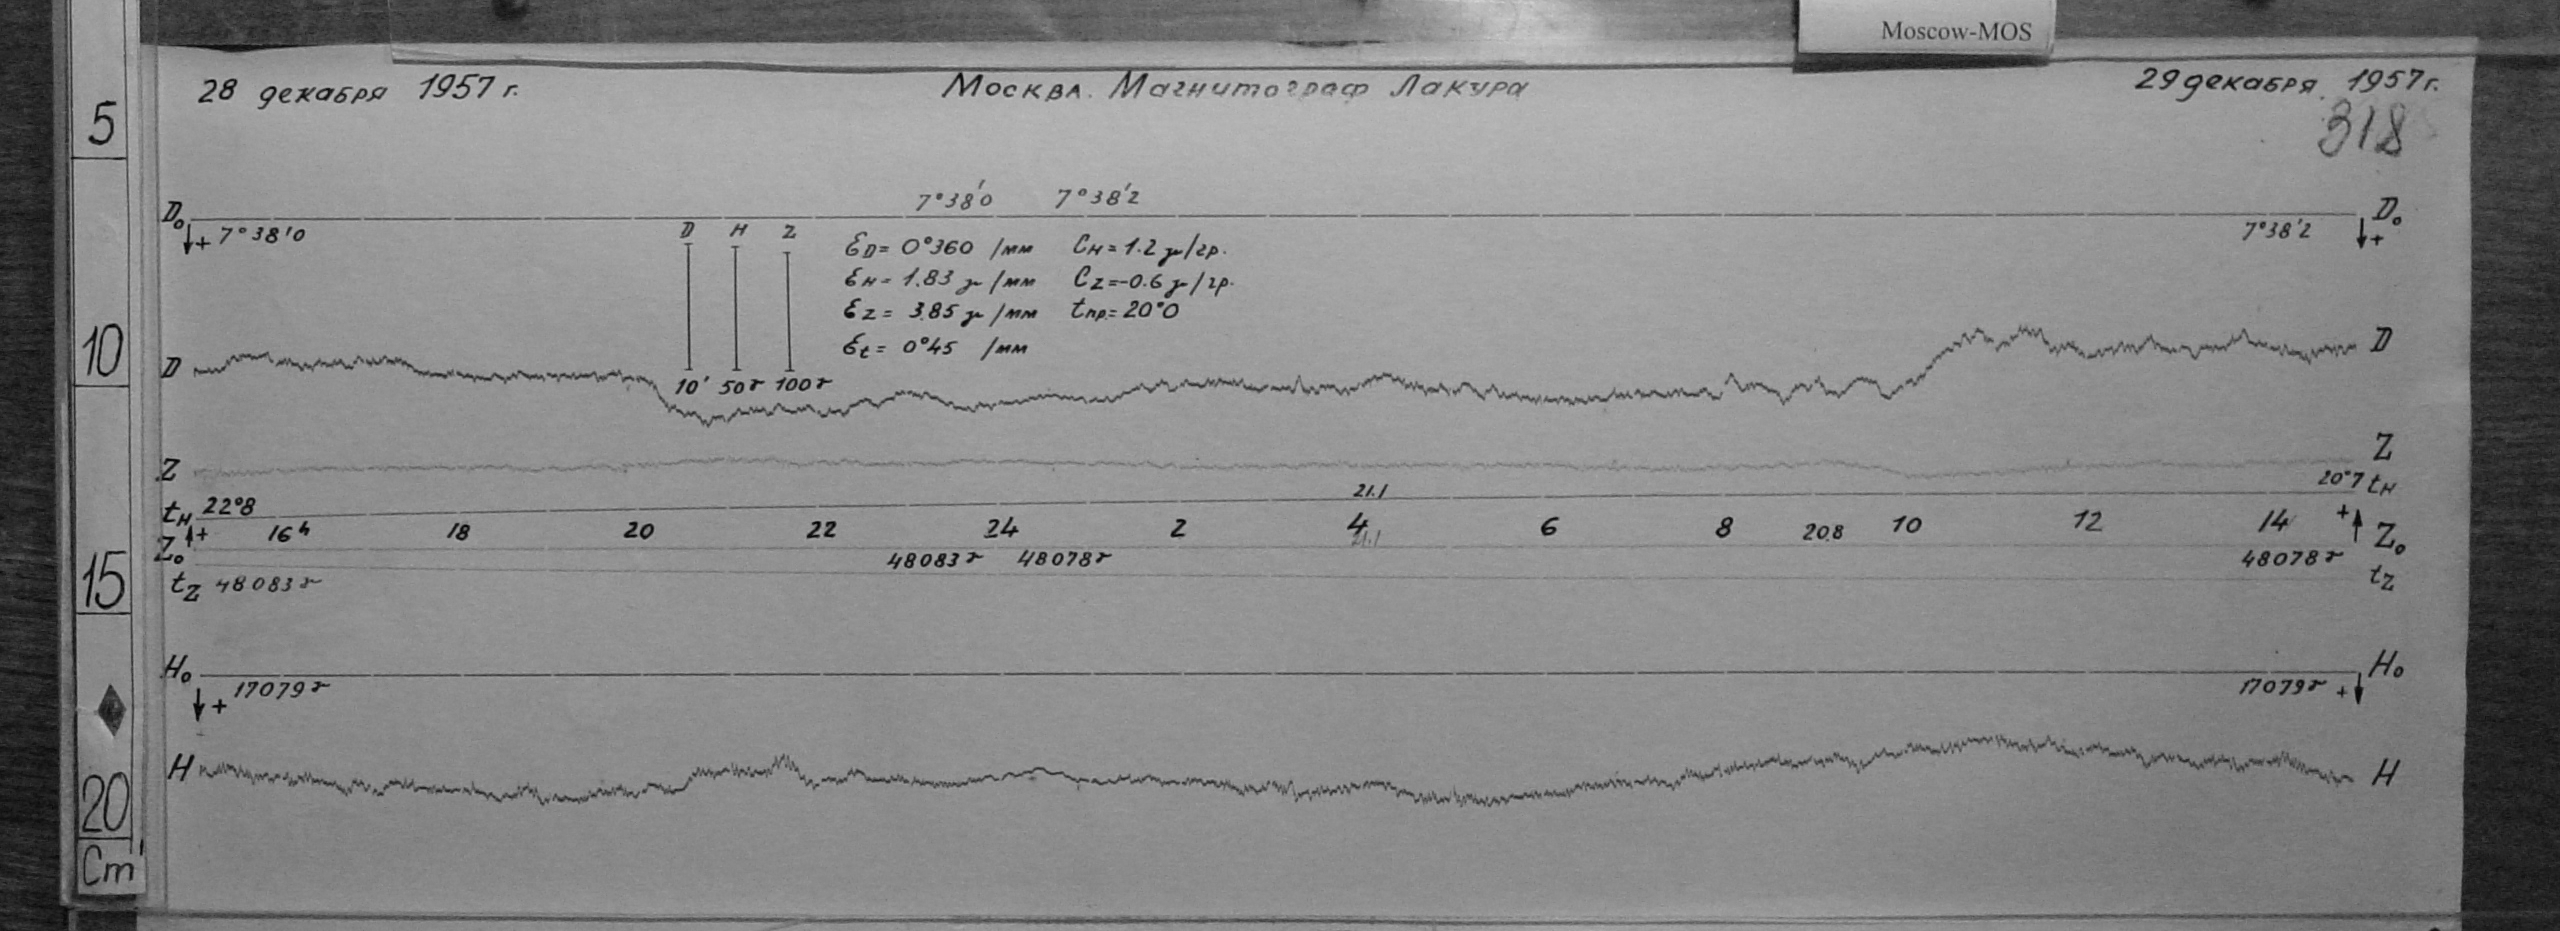 Moscow-MOS
28 декабря 1957 г. Москва. Магнитограф Лакура 29 декабря 1957 г.
318
5
7°38'0 7°38'2
D₀ D₀
+ 7°38'0 D H Z 7°38'2 +
ℰD = 0°360 /мм Cн = 1.2 γ/гр.
ℰн = 1.83 γ/мм Cz = -0.6 γ/гр.
ℰz = 3.85 γ/мм tпр. = 20°0
ℰt = 0°45 /мм
10
D D
10' 50γ 100γ
Z Z
21.1 20°7 tн
tн 22°8
+ 16ʰ 18 20 22 24 2 4 6 8 20.8 10 12 14 +
Z₀ 21.1 Z₀
48083γ 48078γ 48078γ
15 tz 48083γ tz
H₀ H₀
+ 17079γ 17079γ +
H H
20
Cm